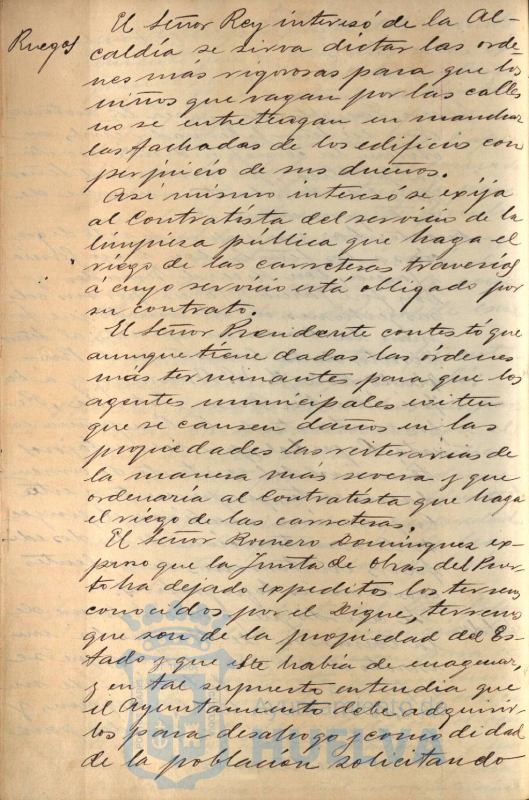 Ruegos
El Señor Rey interesó de la Al-
caldía se sirva dictar las orde-
nes más rigorosas para que los
niños que vagan por las calles
no se entretengan en manchar
las fachadas de los edificios con
perjuicio de sus dueños.
Asi mismo interesó se exija
al Contratista del servicio de la
limpieza pública que haga el
riego de las carreteras travesías
á cuyo servicio está obligado por
su contrato.
El Señor Presidente contestó que
aunque tiene dadas las órdenes
más terminantes para que los
agentes municipales eviten
que se causen daños en las
propiedades las reiterarias de
la manera más severa y que
ordenaria al Contratista que haga
el riego de las carreteras.
El Señor Romero Dominguez ex-
puso que la Junta de Obras del Puer-
to ha dejado expeditos los terrenos
conocidos por el Dique, terrenos
que son de la propiedad del Es-
tado y que este había de enagenar,
y en tal supuesto entendia que
el Ayuntamiento debe adquirir-
los para desahogo y comodidad
de la población solicitando
HUELVA